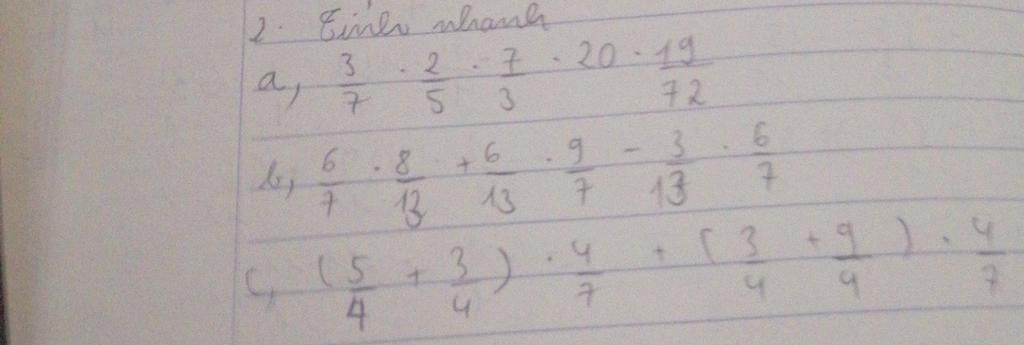 2. Tính nhanh
a, 3/7 . 2/5 . 7/3 . 20 . 19/72
b, 6/7 . 8/13 + 6/13 . 9/7 - 3/13 . 6/7
c, (5/4 + 3/4) . 4/7 + (3/4 + 9/4) . 4/7